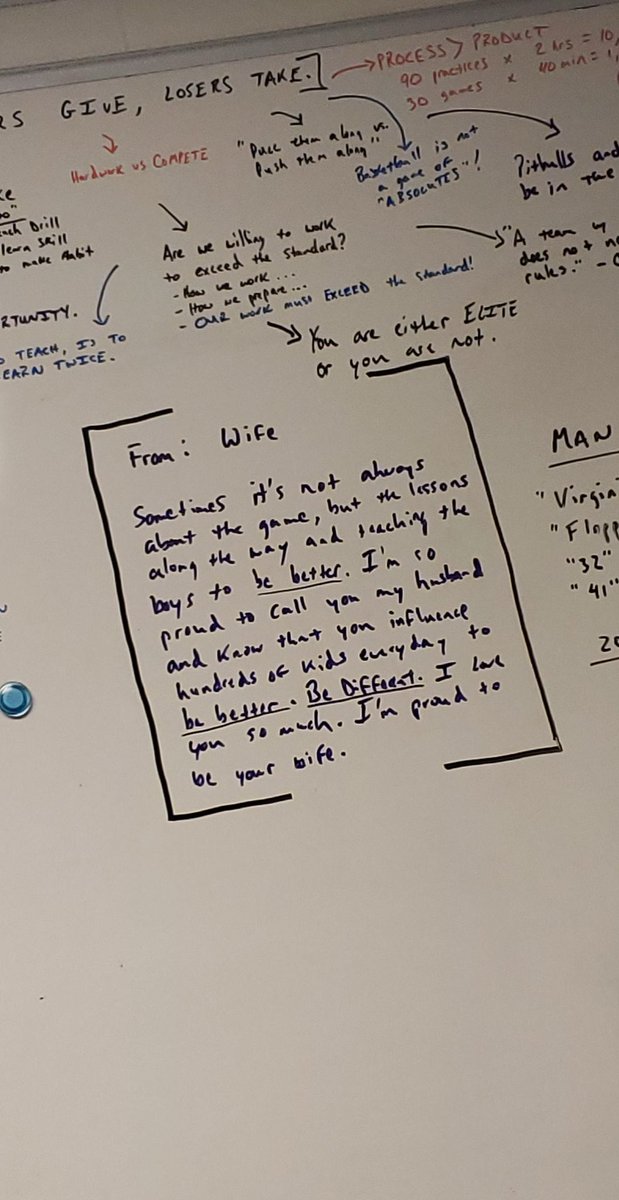 RS GIVE, LOSERS TAKE.]
→ PROCESS > PRODUCT
90 practices x 2 hrs = 10,
30 games x 40 min = 1,
Hardwork vs COMPETE
"Pull them along vs.
Push them along"
Basketball is not
a game of
"ABSOLUTES"!
Pitbulls and
be in the
each Drill
learn skill
to make habit
Are we willing to work
to exceed the standard?
- How we work...
- How we prepare...
- OUR work must EXCEED the standard!
"A team
does not
rules." -
RTUNITY.
TEACH, IS TO
EARN TWICE.
You are either ELITE
or you are not.
From: Wife
Sometimes it's not always
about the game, but the lessons
along the way and teaching the
boys to be better. I'm so
proud to call you my husband
and know that you influence
hundreds of kids everyday to
be better. Be Different. I love
you so much. I'm proud to
be your wife.
MAN
"Virgin
"Flopp
"32"
"41"
20